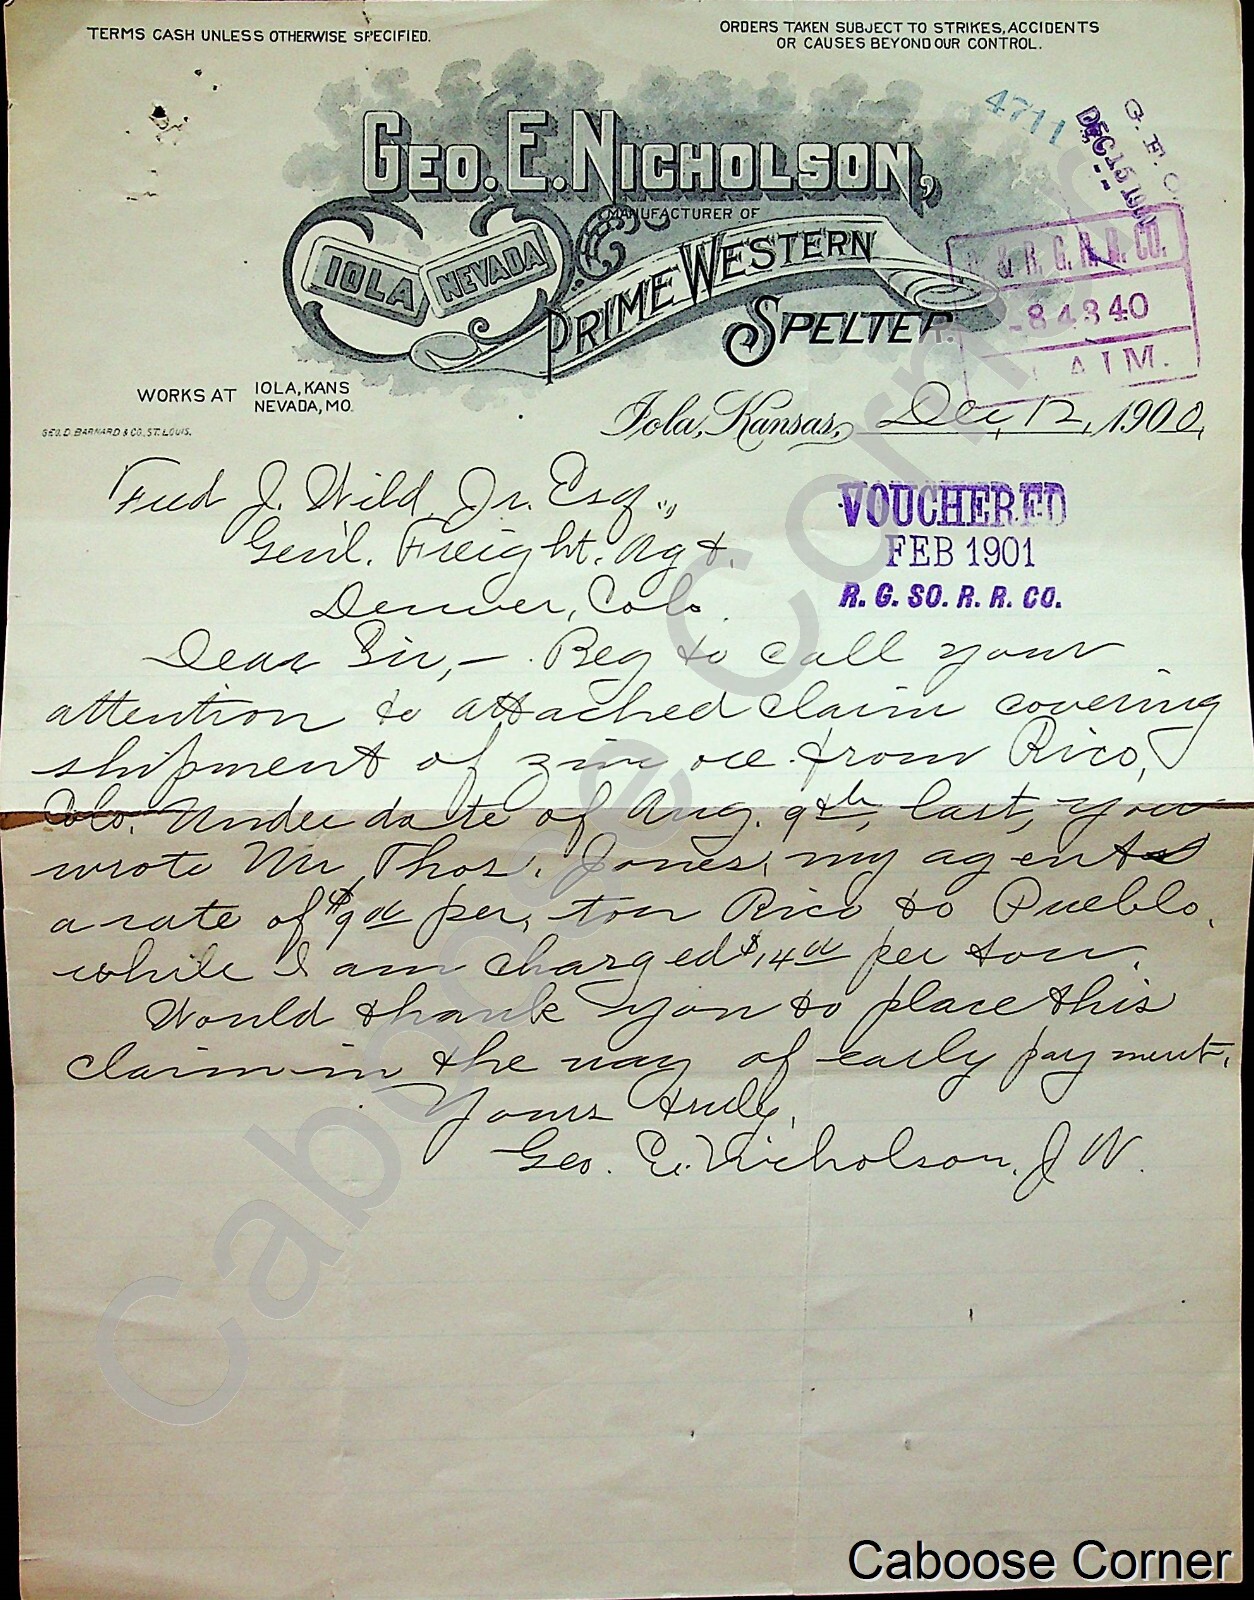 TERMS CASH UNLESS OTHERWISE SPECIFIED.
ORDERS TAKEN SUBJECT TO STRIKES, ACCIDENTS
OR CAUSES BEYOND OUR CONTROL.
4711
G. F. O.
DEC 15 1900
GEO. E. NICHOLSON,
MANUFACTURER OF
PRIME WESTERN
SPELTER.
IOLA
NEVADA
& R. G. R. R. CO.
-84340
AIM.
WORKS AT IOLA, KANS
NEVADA, MO.
GEO. D. BARNARD & CO. ST. LOUIS.
Iola, Kansas, Dec, 12, 1900,
VOUCHERED
FEB 1901
R. G. SO. R. R. CO.
Fred J. Wild, Jr. Esq.,
Gen'l. Freight. Agt.
Denver, Colo.
Dear Sir,— Beg to call your
attention to attached claim covering
shipment of zinc ore from Rico,
Colo. Under date of Aug. 9th, last, you
wrote Mr Thos. Jones, my agent
a rate of $9 00 per, ton Rico to Pueblo,
while I am charged $14 00 per ton.
Would thank you to place this
claim in the way of early payment.
Yours truly,
Geo. E. Nicholson, J W.
Caboose Corner
Caboose Corner